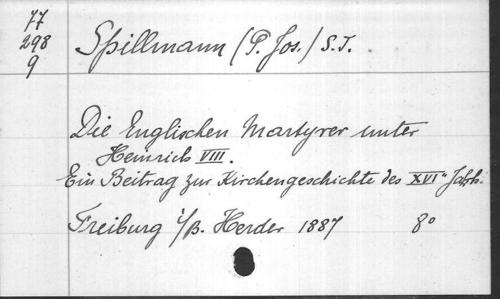 77
298
9
Spillmann (P. Jos.) S.J.
Die Englischen Martyrer unter
Heinrich VIII.
Ein Beitrag zur Kirchengeschichte des XVI" Jahrh.
Freiburg i/B. Herder 1887 8°